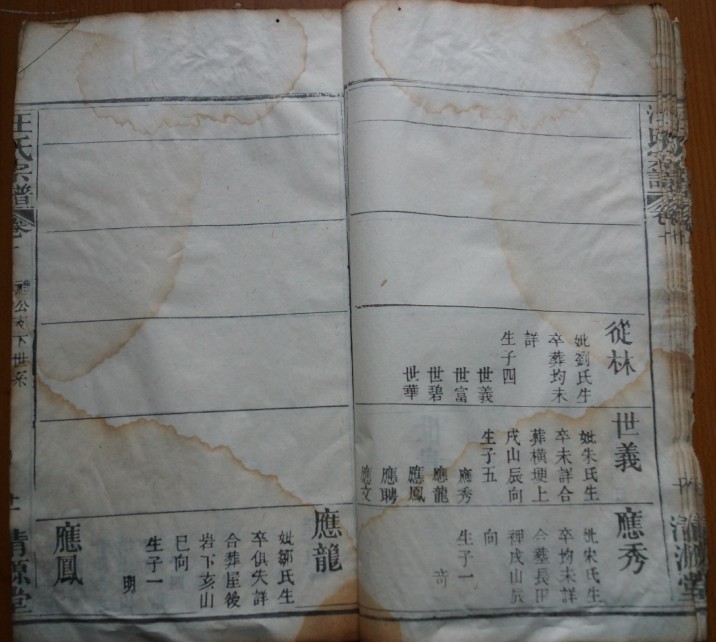 從林
妣劉氏生
卒葬均未
詳
生子四
世義
世富
世碧
世華
世義
妣朱氏生
卒未詳合
葬橫埂上
戌山辰向
生子五
應秀
應龍
應鳳
應聘
應文
應秀
妣宋氏生
卒均未詳
合墓長田
裡戌山辰
向
生子一
應龍
妣劉氏生
卒俱失詳
合葬屋後
岩下亥山
巳向
生子一
明
應鳳
汪氏宗譜
卷十
公支下世系
十一
清源堂